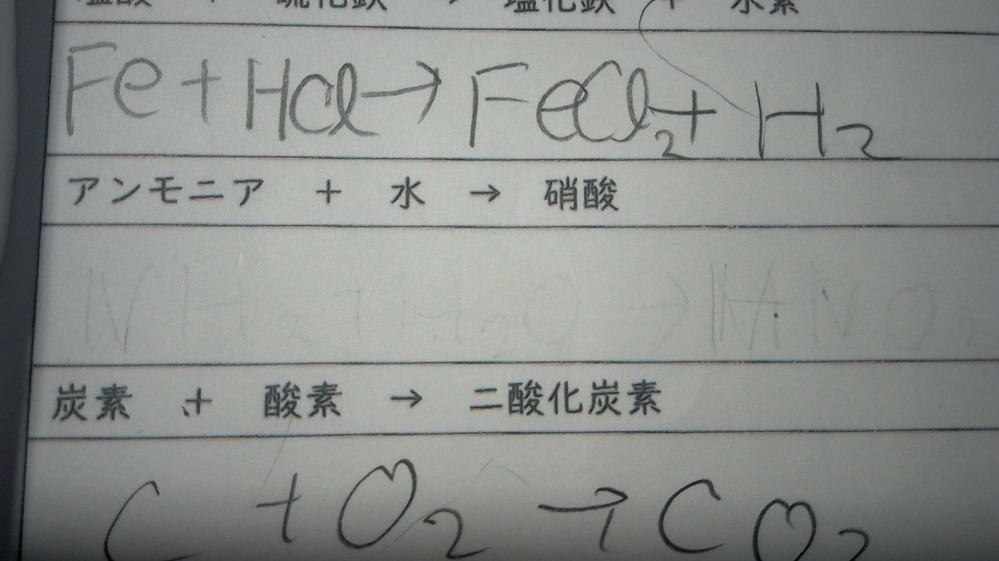 塩酸 + 硫化鉄 → 塩化鉄 + 水素
Fe + HCl → FeCl₂ + H₂
アンモニア + 水 → 硝酸
NH₃ + H₂O → HNO
炭素 + 酸素 → 二酸化炭素
C + O₂ → CO₂